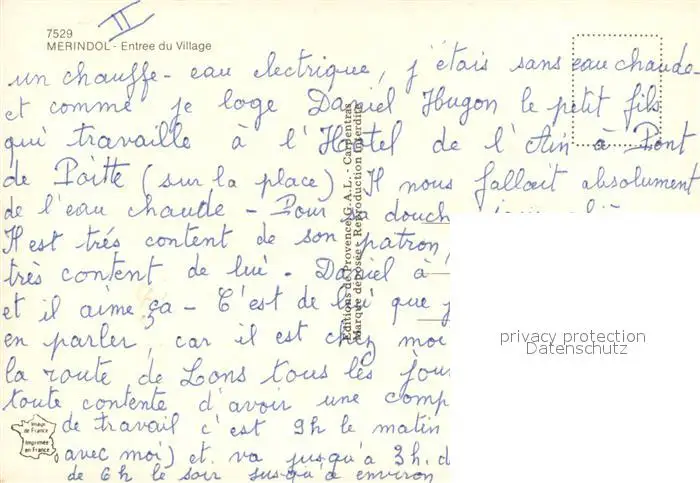 II
7529
MERINDOL - Entree du Village
un chauffe-eau electrique, j'étais sans eau chaude
et comme je loge Daniel Hugon le petit fils
qui travaille à l'Hostel de l'Ain à Pont
de Poitte (sur la place) Il nous fallait absolument
de l'eau chaude - Pour sa douch
Il est très content de son patron,
très content de lui. Daniel à
et il aime ça - C'est de lui que j
en parler, car il est chez moi
la route de Lons tous les jou
toute contente d'avoir une comp
de travail c'est 9h le matin
avec moi) et va jusqu'à 3h. d
de 6h le soir jusqu'à environ
Editions de Provence, G.A.L. - Carpentras
Marque déposée - Reproduction Interdite
Image
de France
Imprimée
en France
privacy protection
Datenschutz